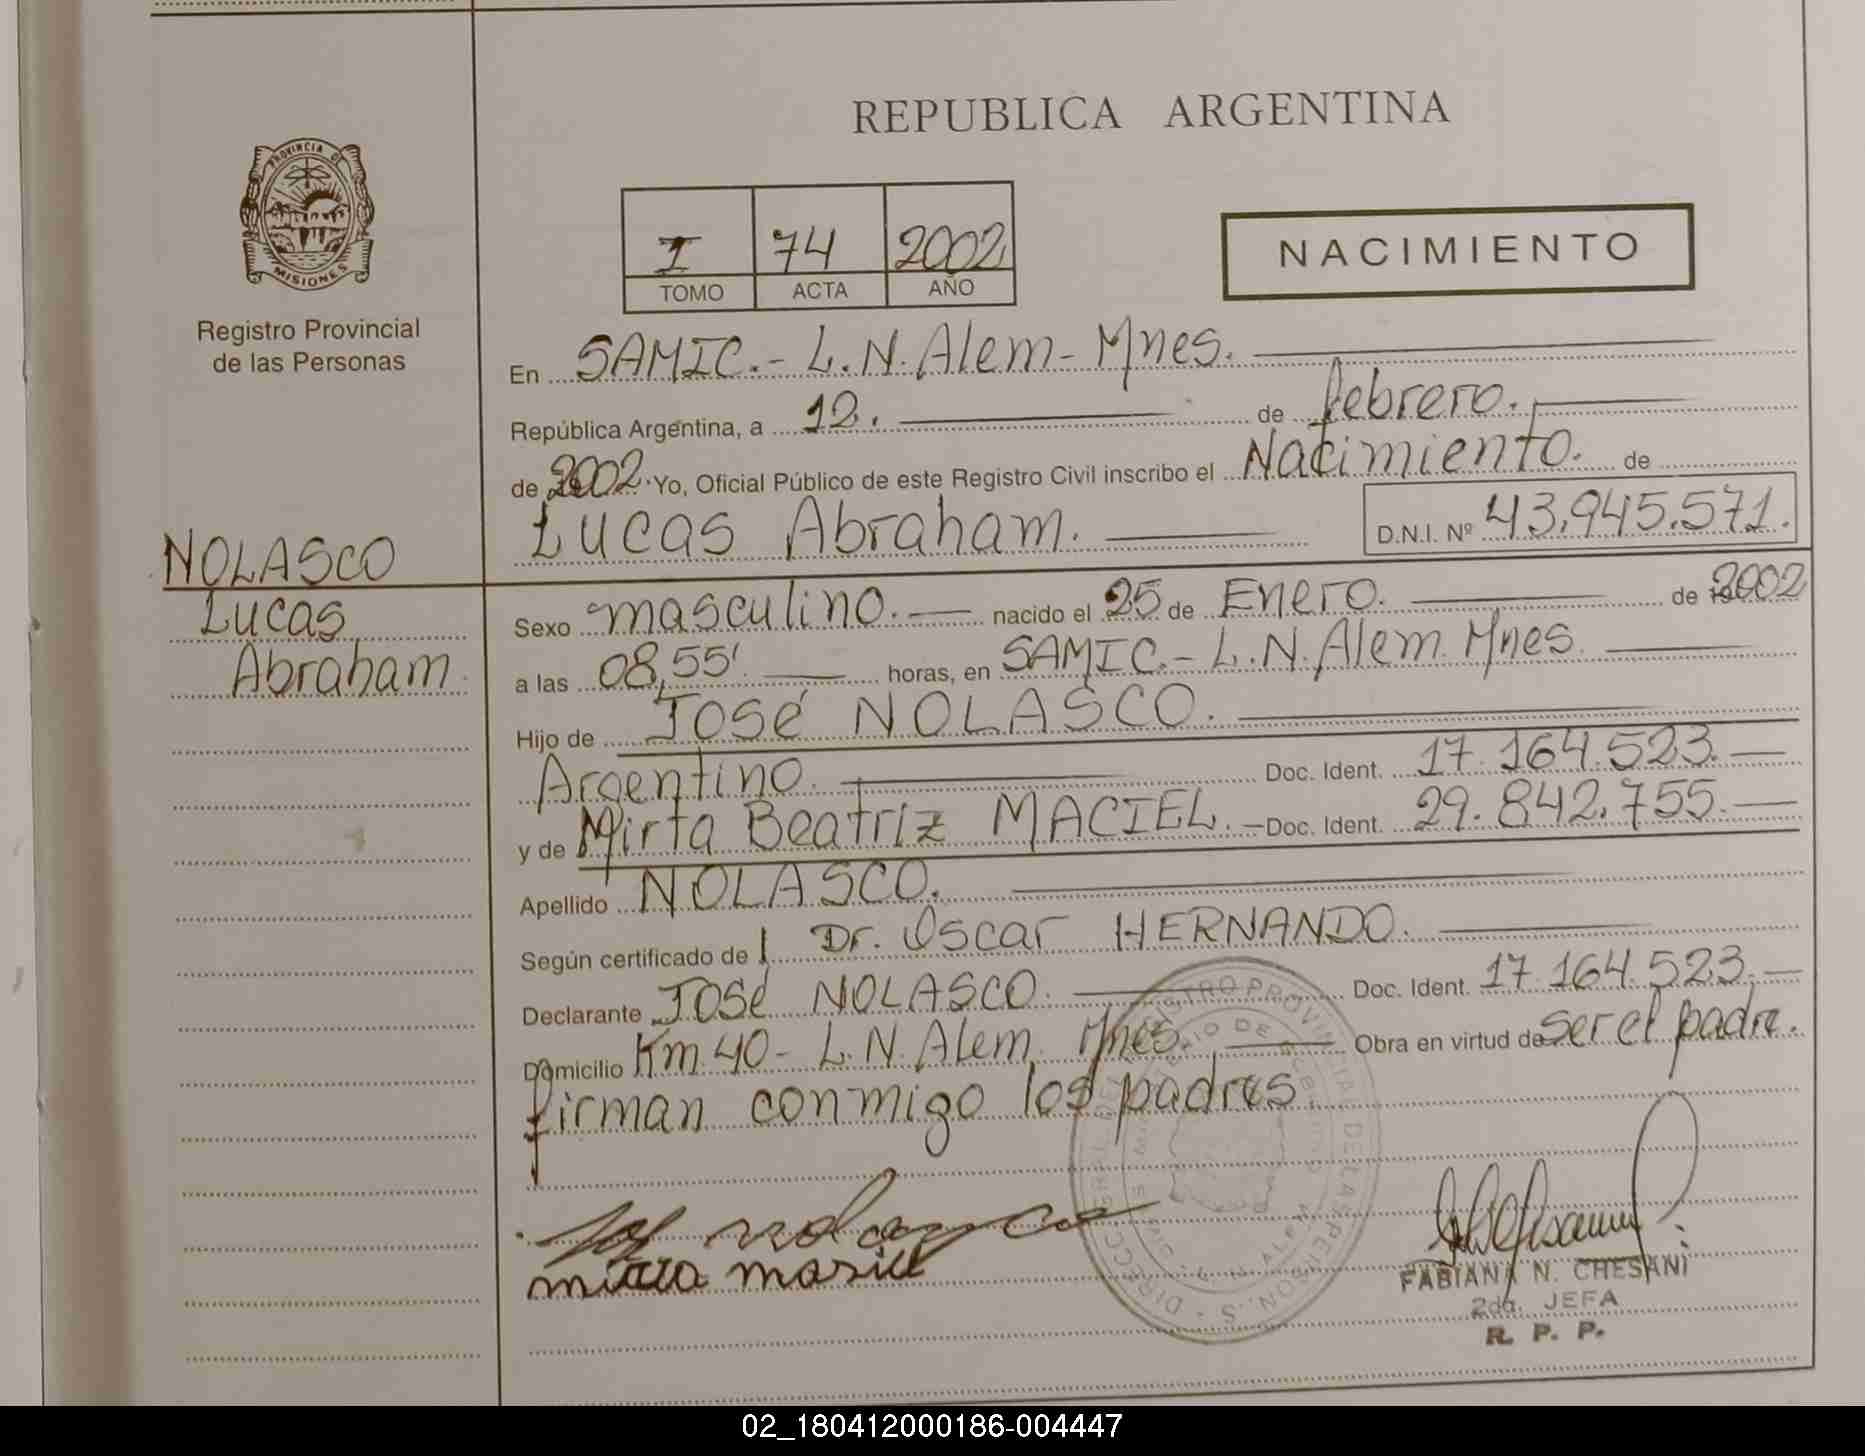 REPUBLICA ARGENTINA
PROVINCIA DE
MISIONES
Registro Provincial
de las Personas
I 74 2002
TOMO ACTA AÑO
NACIMIENTO
En SAMIC.- L.N. Alem- Mnes.
República Argentina, a 12. de febrero.
de 2002 Yo, Oficial Público de este Registro Civil inscribo el Nacimiento. de
Lucas Abraham. D.N.I. Nº 43.945.571.
NOLASCO
Lucas
Abraham
Sexo masculino. nacido el 25 de Enero. de 2002
a las 08,55' horas, en SAMIC.- L.N. Alem. Mnes.
Hijo de José NOLASCO.
Argentino. Doc. Ident. 17.164.523.
y de Mirta Beatriz MACIEL. Doc. Ident. 29.842.755.
Apellido NOLASCO.
Según certificado de Dr. Oscar HERNANDO.
Declarante José NOLASCO. Doc. Ident. 17.164.523.
Domicilio Km 40- L.N. Alem. Mnes. Obra en virtud de ser el padre.
firman conmigo los padres
FABIANA N. CHESANI
2da. JEFA
R. P. P.
02_180412000186-004447